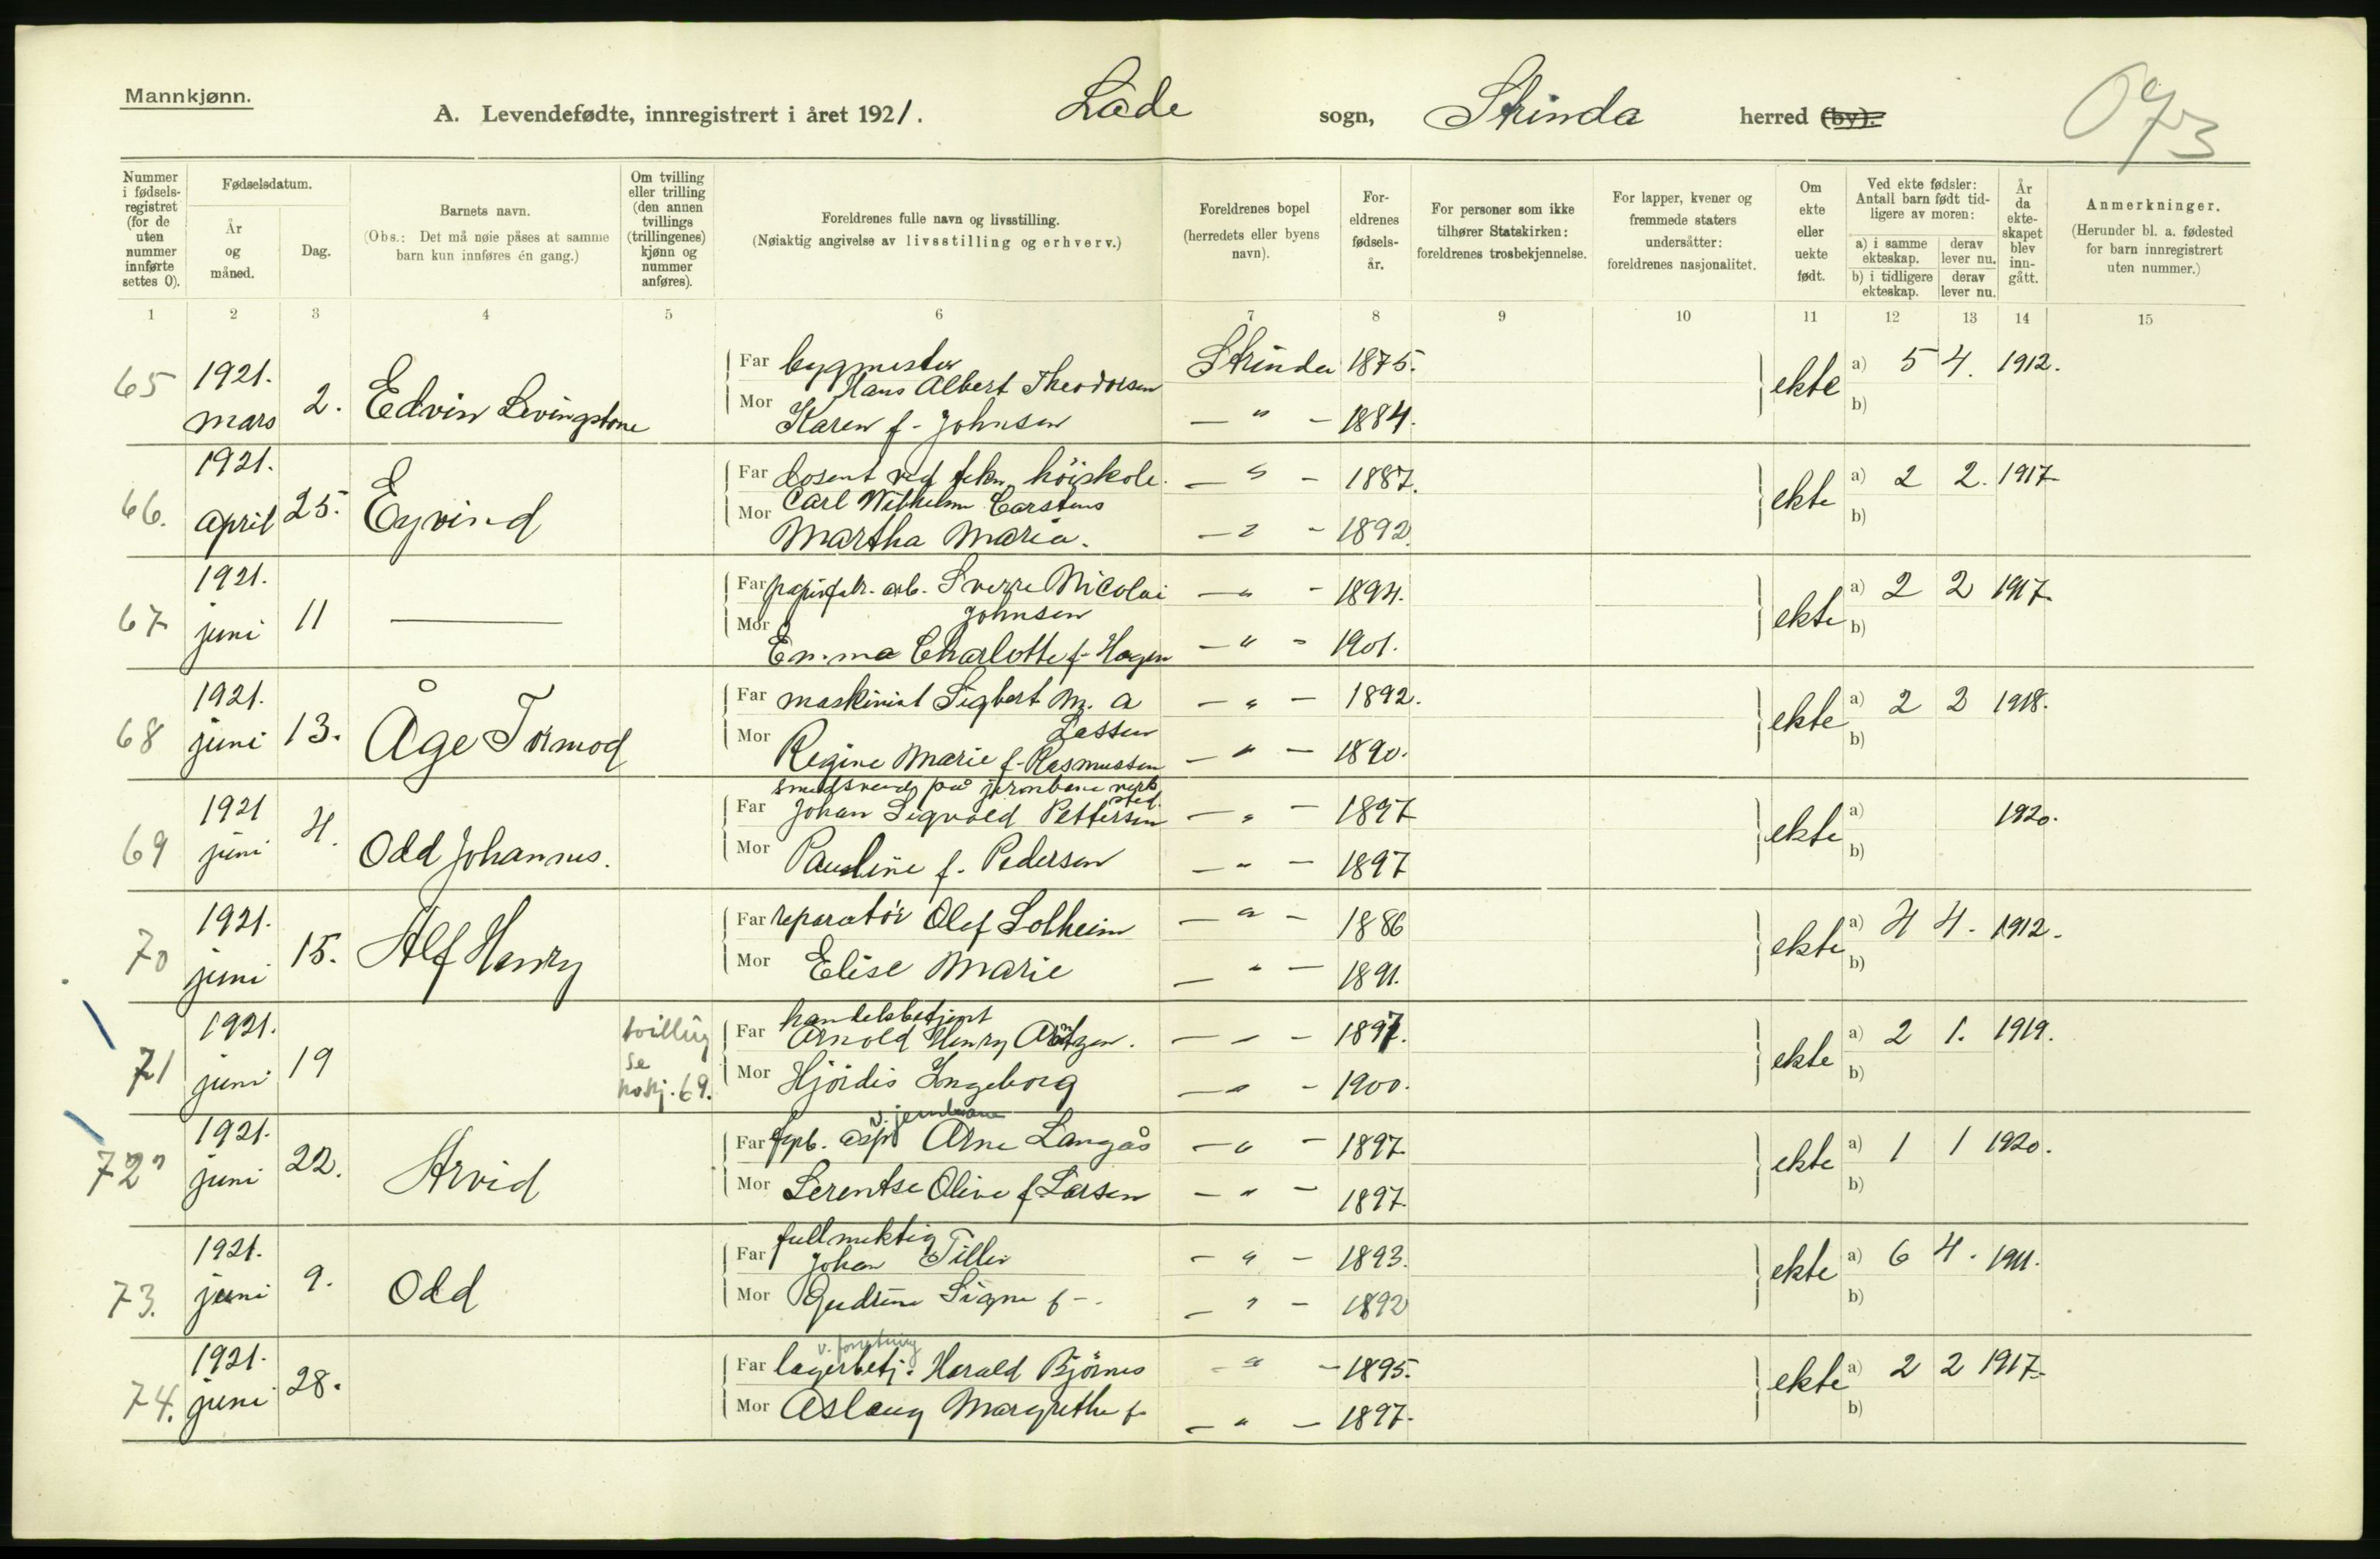 Mannkjønn.
A. Levendefødte, innregistrert i året 1921. Lade sogn, Strinda herred (by).
Nummer i fødsels-registret (for de uten nummer innførte settes 0).
Fødselsdatum.
År og måned.
Dag.
Barnets navn.
(Obs.: Det må nøie påses at samme barn kun innføres én gang.)
Om tvilling eller trilling (den annen tvillings (trillingenes) kjønn og nummer anføres).
Foreldrenes fulle navn og livsstilling.
(Nøiaktig angivelse av livsstilling og erhverv.)
Foreldrenes bopel (herredets eller byens navn).
For-eldrenes fødsels-år.
For personer som ikke tilhører Statskirken: foreldrenes trosbekjennelse.
For lapper, kvener og fremmede staters undersåtter: foreldrenes nasjonalitet.
Om ekte eller uekte født.
Ved ekte fødsler: Antall barn født tid-ligere av moren:
a) i samme ekteskap. derav lever nu.
b) i tidligere ekteskap. derav lever nu.
År da ekte-skapet blev inn-gått.
Anmerkninger.
(Herunder bl. a. fødested for barn innregistrert uten nummer.)
1 2 3 4 5 6 7 8 9 10 11 12 13 14 15
65 1921. mars 2. Edvin Levingstone
Far bygmester Hans Albert Theodorsen Strinda 1875. ekte a) 5 4. 1912.
Mor Karen f. Johnsen — " — 1884. b)
66. 1921. april 25. Eyvind
Far dosent ved tekn. høiskole. Carl Wilhelm Carstens — " — 1887. ekte a) 2 2. 1917
Mor Martha Maria. — " — 1892. b)
67 1921. juni 11 —
Far papirfabr. arb. Sverre Nicolai Johnsen — " — 1894. ekte a) 2 2 1917
Mor Emma Charlotte f. Hagen — " — 1901. b)
68 1921. juni 13. Åge Tormod
Far maskinist Sigbert M. A Lassen — " — 1892. ekte a) 2 2 1918.
Mor Regine Marie f. Rasmussen — " — 1890. b)
69 1921 juni 4. Odd Johannes.
smedsvend på jernbane verksted.
Far Johan Sigvald Pettersen — " — 1897 ekte a) 1920.
Mor Pauline f. Pedersen — " — 1897 b)
70 1921. juni 15. Alf Henry
Far reparatør Olef Solheim — " — 1886 ekte a) 4 4. 1912.
Mor Elise Marie — " — 1891. b)
71 1921. juni 19 tvilling se 69.
Far handelsbetjent Arnold Henry — " — 1897. ekte a) 2 1. 1919.
Mor Hjördis Ingeborg — " — 1900. b)
72 1921. juni 22. Arvid
v. jernbane
Far asp. Arne Langås — " — 1897 ekte a) 1 1 1920.
Mor Serentse Olive f. Larsen — " — 1897. b)
73. 1921. juni 9. Odd
Far fullmektig Johan Tiller — " — 1893. ekte a) 6 4. 1911.
Mor Gudrun Signe f — — " — 1892 b)
74. 1921. juni 28.
v. forretning
Far lagerbetj. Harald Björnes — " — 1895. ekte a) 2 2 1917.
Mor Aslaug Margrethe f. — " — 1897. b)